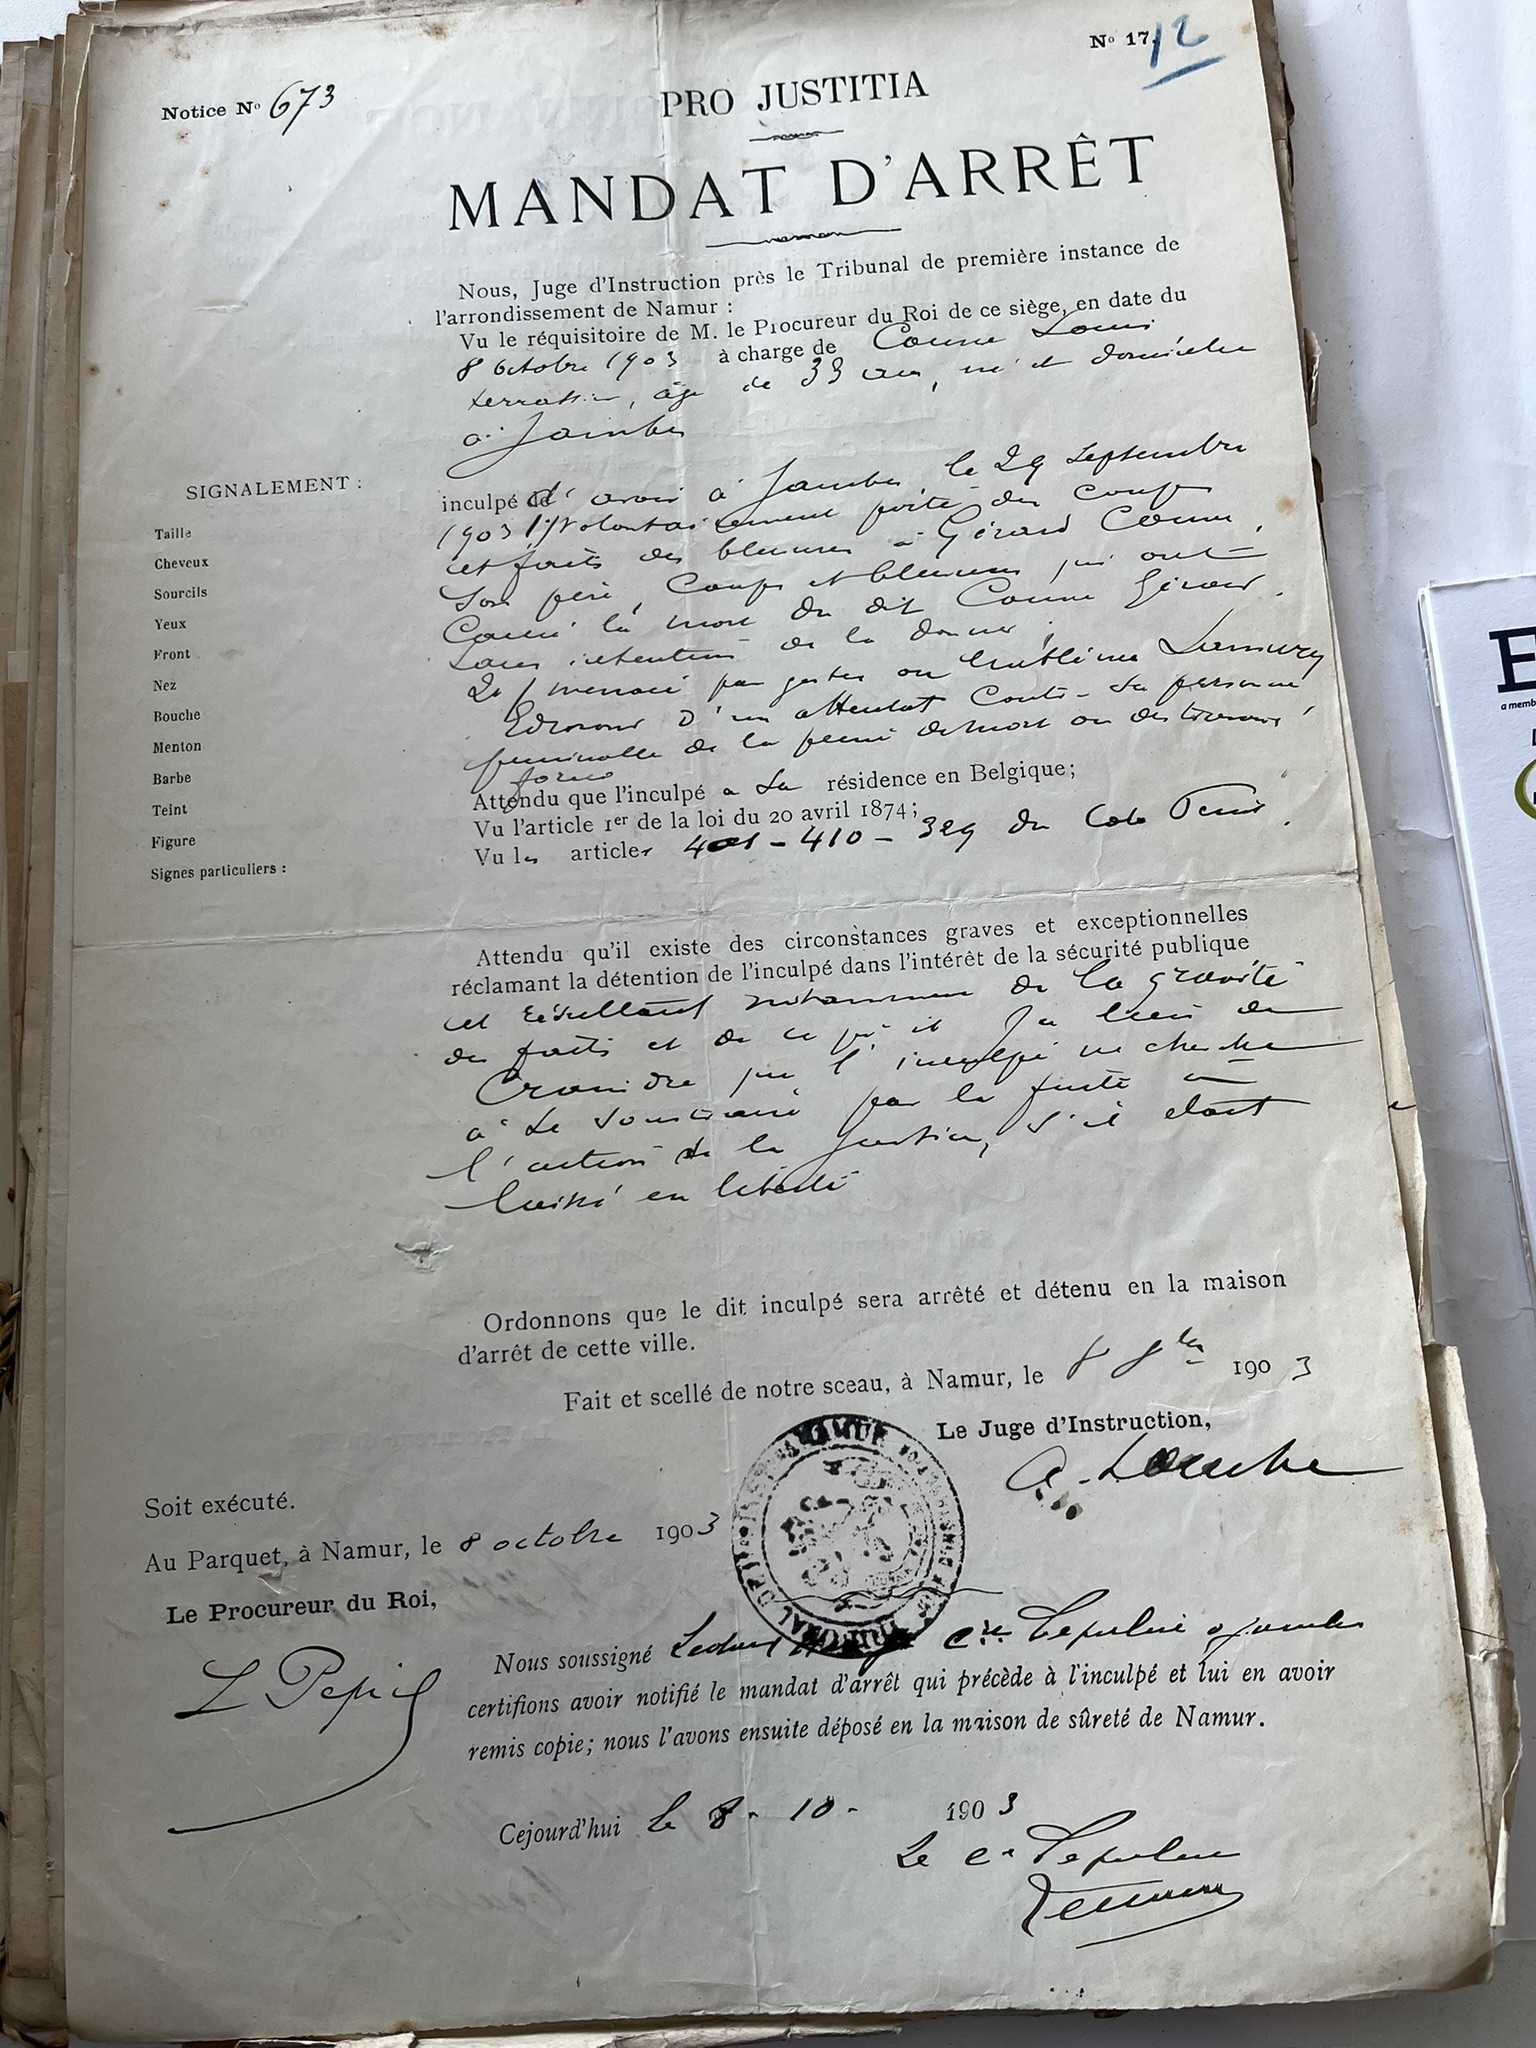 Notice Nº 673
Nº 17. 12
PRO JUSTITIA
MANDAT D'ARRÊT
Nous, Juge d'Instruction près le Tribunal de première instance de
l'arrondissement de Namur :
Vu le réquisitoire de M. le Procureur du Roi de ce siège, en date du
8 octobre 1903 à charge de Louis
terrassier, âgé de 33 ans, né et domicilié
à Jambes
SIGNALEMENT :
Taille
Cheveux
Sourcils
Yeux
Front
Nez
Bouche
Menton
Barbe
Teint
Figure
Signes particuliers :
inculpé d'avoir à Jambes, le 29 septembre
1903 1º) volontairement porté des coups
et fait des blessures à Gérard
son père, coups et blessures qui ont
causé la mort du dit Gérard
sans intention de la donner ;
2º) menacé par gestes ou emblèmes
Edmond d'un attentat contre sa personne
punissable de la peine de mort ou des travaux
forcés
Attendu que l'inculpé a sa résidence en Belgique;
Vu l'article 1er de la loi du 20 avril 1874;
Vu les articles 401 - 410 - 329 du Code Pénal.
Attendu qu'il existe des circonstances graves et exceptionnelles
réclamant la détention de l'inculpé dans l'intérêt de la sécurité publique
et résultant notamment de la gravité
des faits et de ce qu'il y a lieu de
craindre que l'inculpé ne cherche
à se soustraire par la fuite à
l'action de la justice, s'il était
laissé en liberté
Ordonnons que le dit inculpé sera arrêté et détenu en la maison
d'arrêt de cette ville.
Fait et scellé de notre sceau, à Namur, le 8 8bre 1903
Le Juge d'Instruction,
Soit exécuté.
Au Parquet, à Namur, le 8 octobre 1903
Le Procureur du Roi,
Nous soussigné à Jambes
certifions avoir notifié le mandat d'arrêt qui précède à l'inculpé et lui en avoir
remis copie; nous l'avons ensuite déposé en la maison de sûreté de Namur.
Cejourd'hui le 8 - 10 - 1903
Le